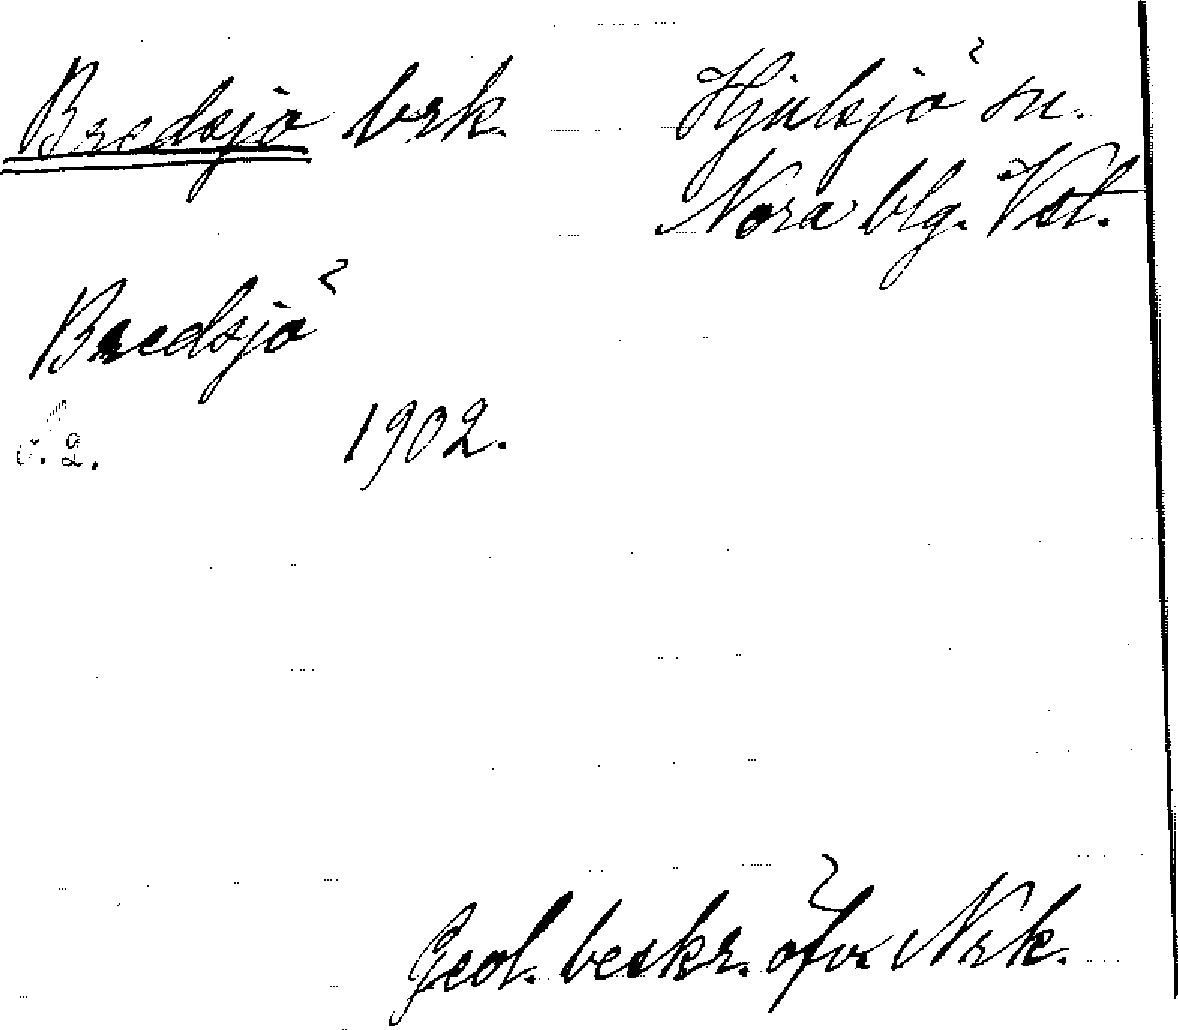 Bredsjö brk. Hjulsjö sn.
Nora blg. Vstl.
Bredsjö
s. 2. 1902.
Geol. beskr. öfv. Nrk.